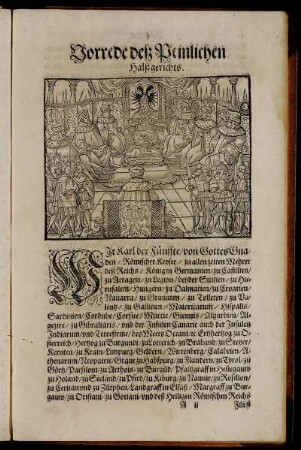 Vorrede deß Peinlichen
Halßgerichts.
WIr Karl der Fünffte / von Gottes Gna-
den / Römischer Keyser / zu allen zeiten Mehrer
deß Reichs / König in Germanien / zu Castilien /
zu Arragon / zu Legion / beyder Sicilien / zu Hie-
rusalem / Hungern / zu Dalmatien / zu Croatien /
Nauarra / zu Granaten / zu Tolleten / zu Va-
lentz / zu Gallicien / Maioricarum / Hispalis /
Sardinien / Cordube / Corsice / Murcie / Giennis / Algarbien / Al-
gezire / zu Gibraltaris / und der Insulen Canarie auch der Insulen
Indiarum / und Terrefirme / deß Meers Oceani / ꝛc. Ertzhertzog zu O-
sterreich / Hertzog zu Burgundi / zu Lotterich / zu Braband / zu Steyer /
Kernten / zu Krain / Limpurg / Geldern / Wirtenberg / Calabrien /
Athenarum / Neopatrie / Graue zu Habspurg / zu Flandern / zu Tyrol / zu
Görtz / Parsiloni / zu Arthois / zu Burgund / Pfaltzgraff in Henegaw /
zu Holand / zu Seeland / zu Pfirt / zu Kiburg / zu Namur / zu Rosilion /
zu Ceritan und zu Zütphen / Landgraff in Elsaß / Marggraff zu Bur-
gaum / zu Oristani / zu Gotiani / und deß Heiligen Römischen Reichs
A ij Fürst